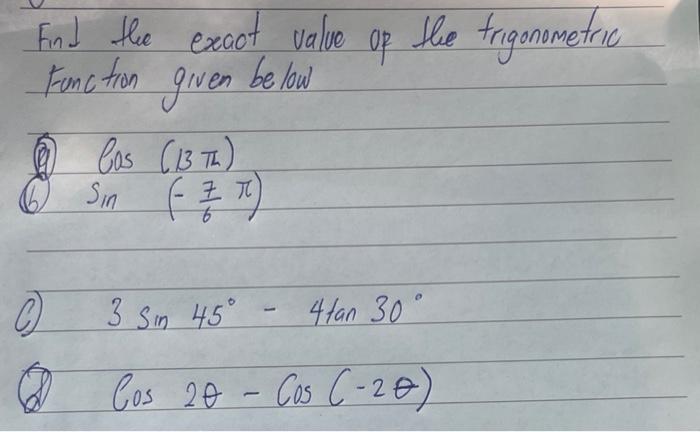 Find the exact value of the trigonometric
Function given below
(a) Cos (13 π)
(b) Sin (- 7/6 π)
(c) 3 Sin 45° - 4tan 30°
(d) Cos 2θ - Cos (-2θ)